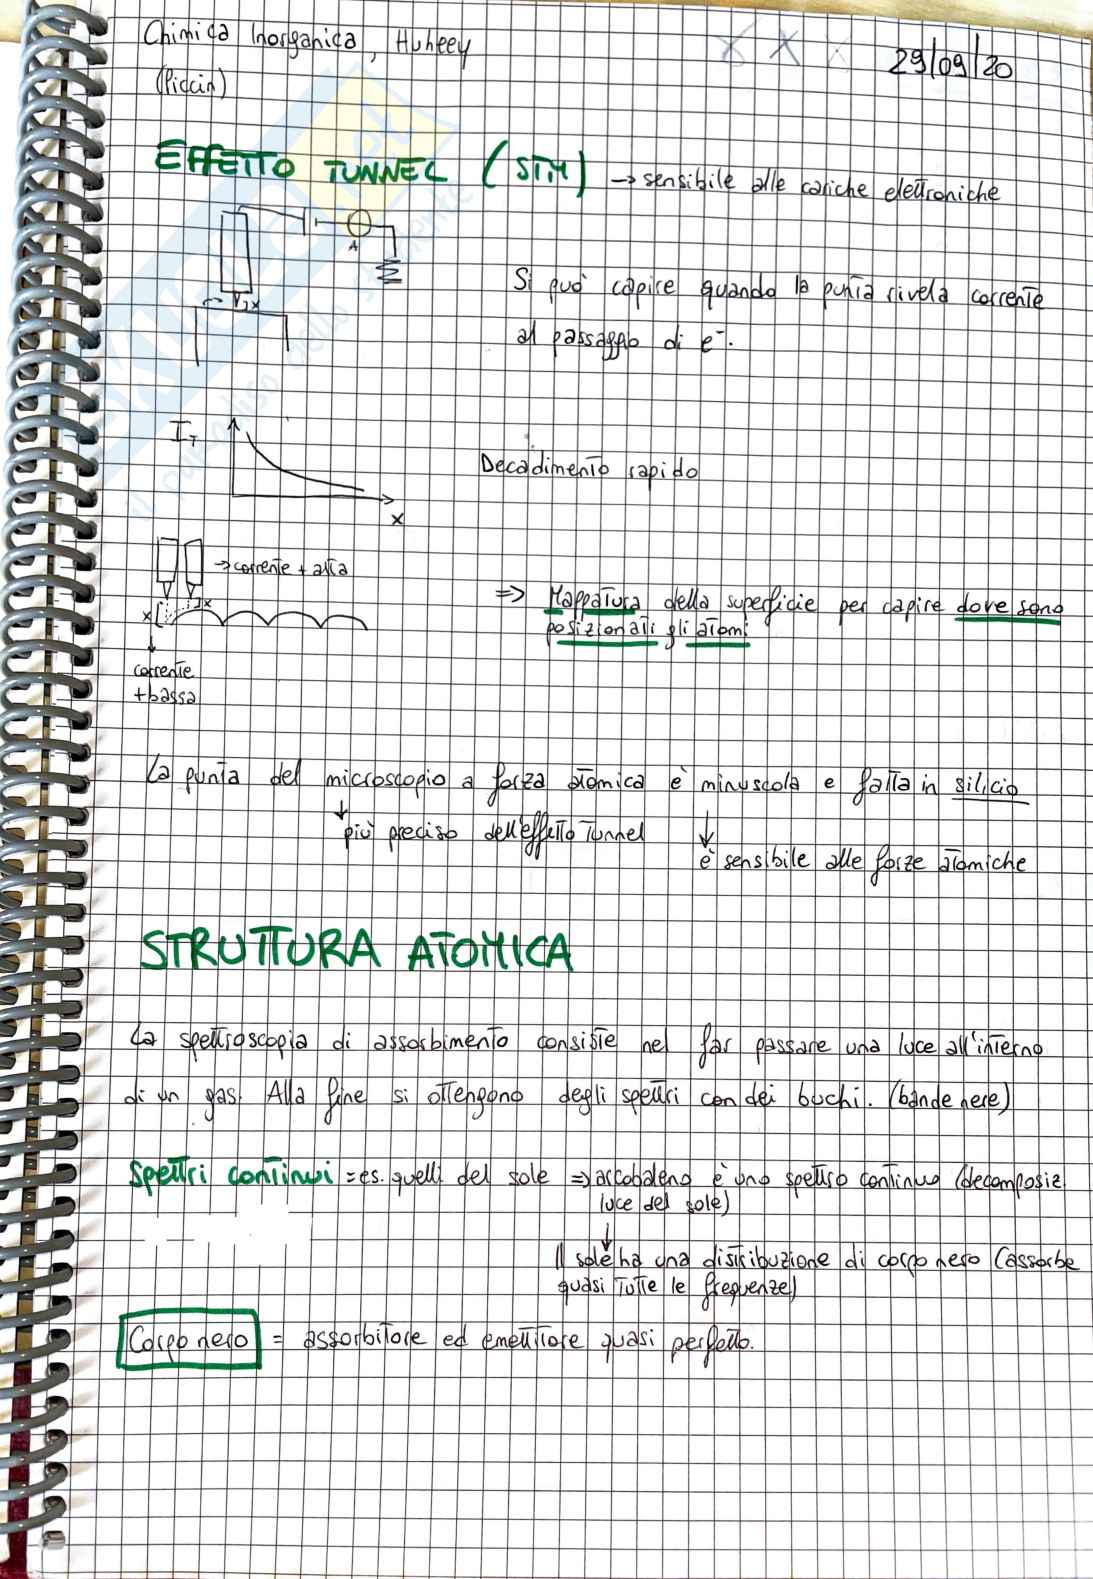 Chimica Inorganica, Huheey
(Piccin)
29/09/20
EFFETTO TUNNEL (STM) → sensibile alle cariche elettroniche
A
x
Si può capire quando la punta rivela corrente
al passaggio di e⁻.
I_T
x
Decadimento rapido
→ corrente + alta
x
x
corrente
+ bassa
⇒ Mappatura della superficie per capire dove sono
posizionati gli atomi
La punta del microscopio a forza atomica è minuscola e fatta in silicio
↓ più preciso dell'effetto Tunnel
↓
è sensibile alle forze atomiche
STRUTTURA ATOMICA
La spettroscopia di assorbimento consiste nel far passare una luce all'interno
di un gas. Alla fine si ottengono degli spettri con dei buchi. (bande nere)
Spettri continui = es. quelli del sole ⇒ arcobaleno è uno spettro continuo (decomposiz
luce del sole)
↓
Il sole ha una distribuzione di corpo nero (assorbe
quasi tutte le frequenze)
Corpo nero = assorbitore ed emettitore quasi perfetto.